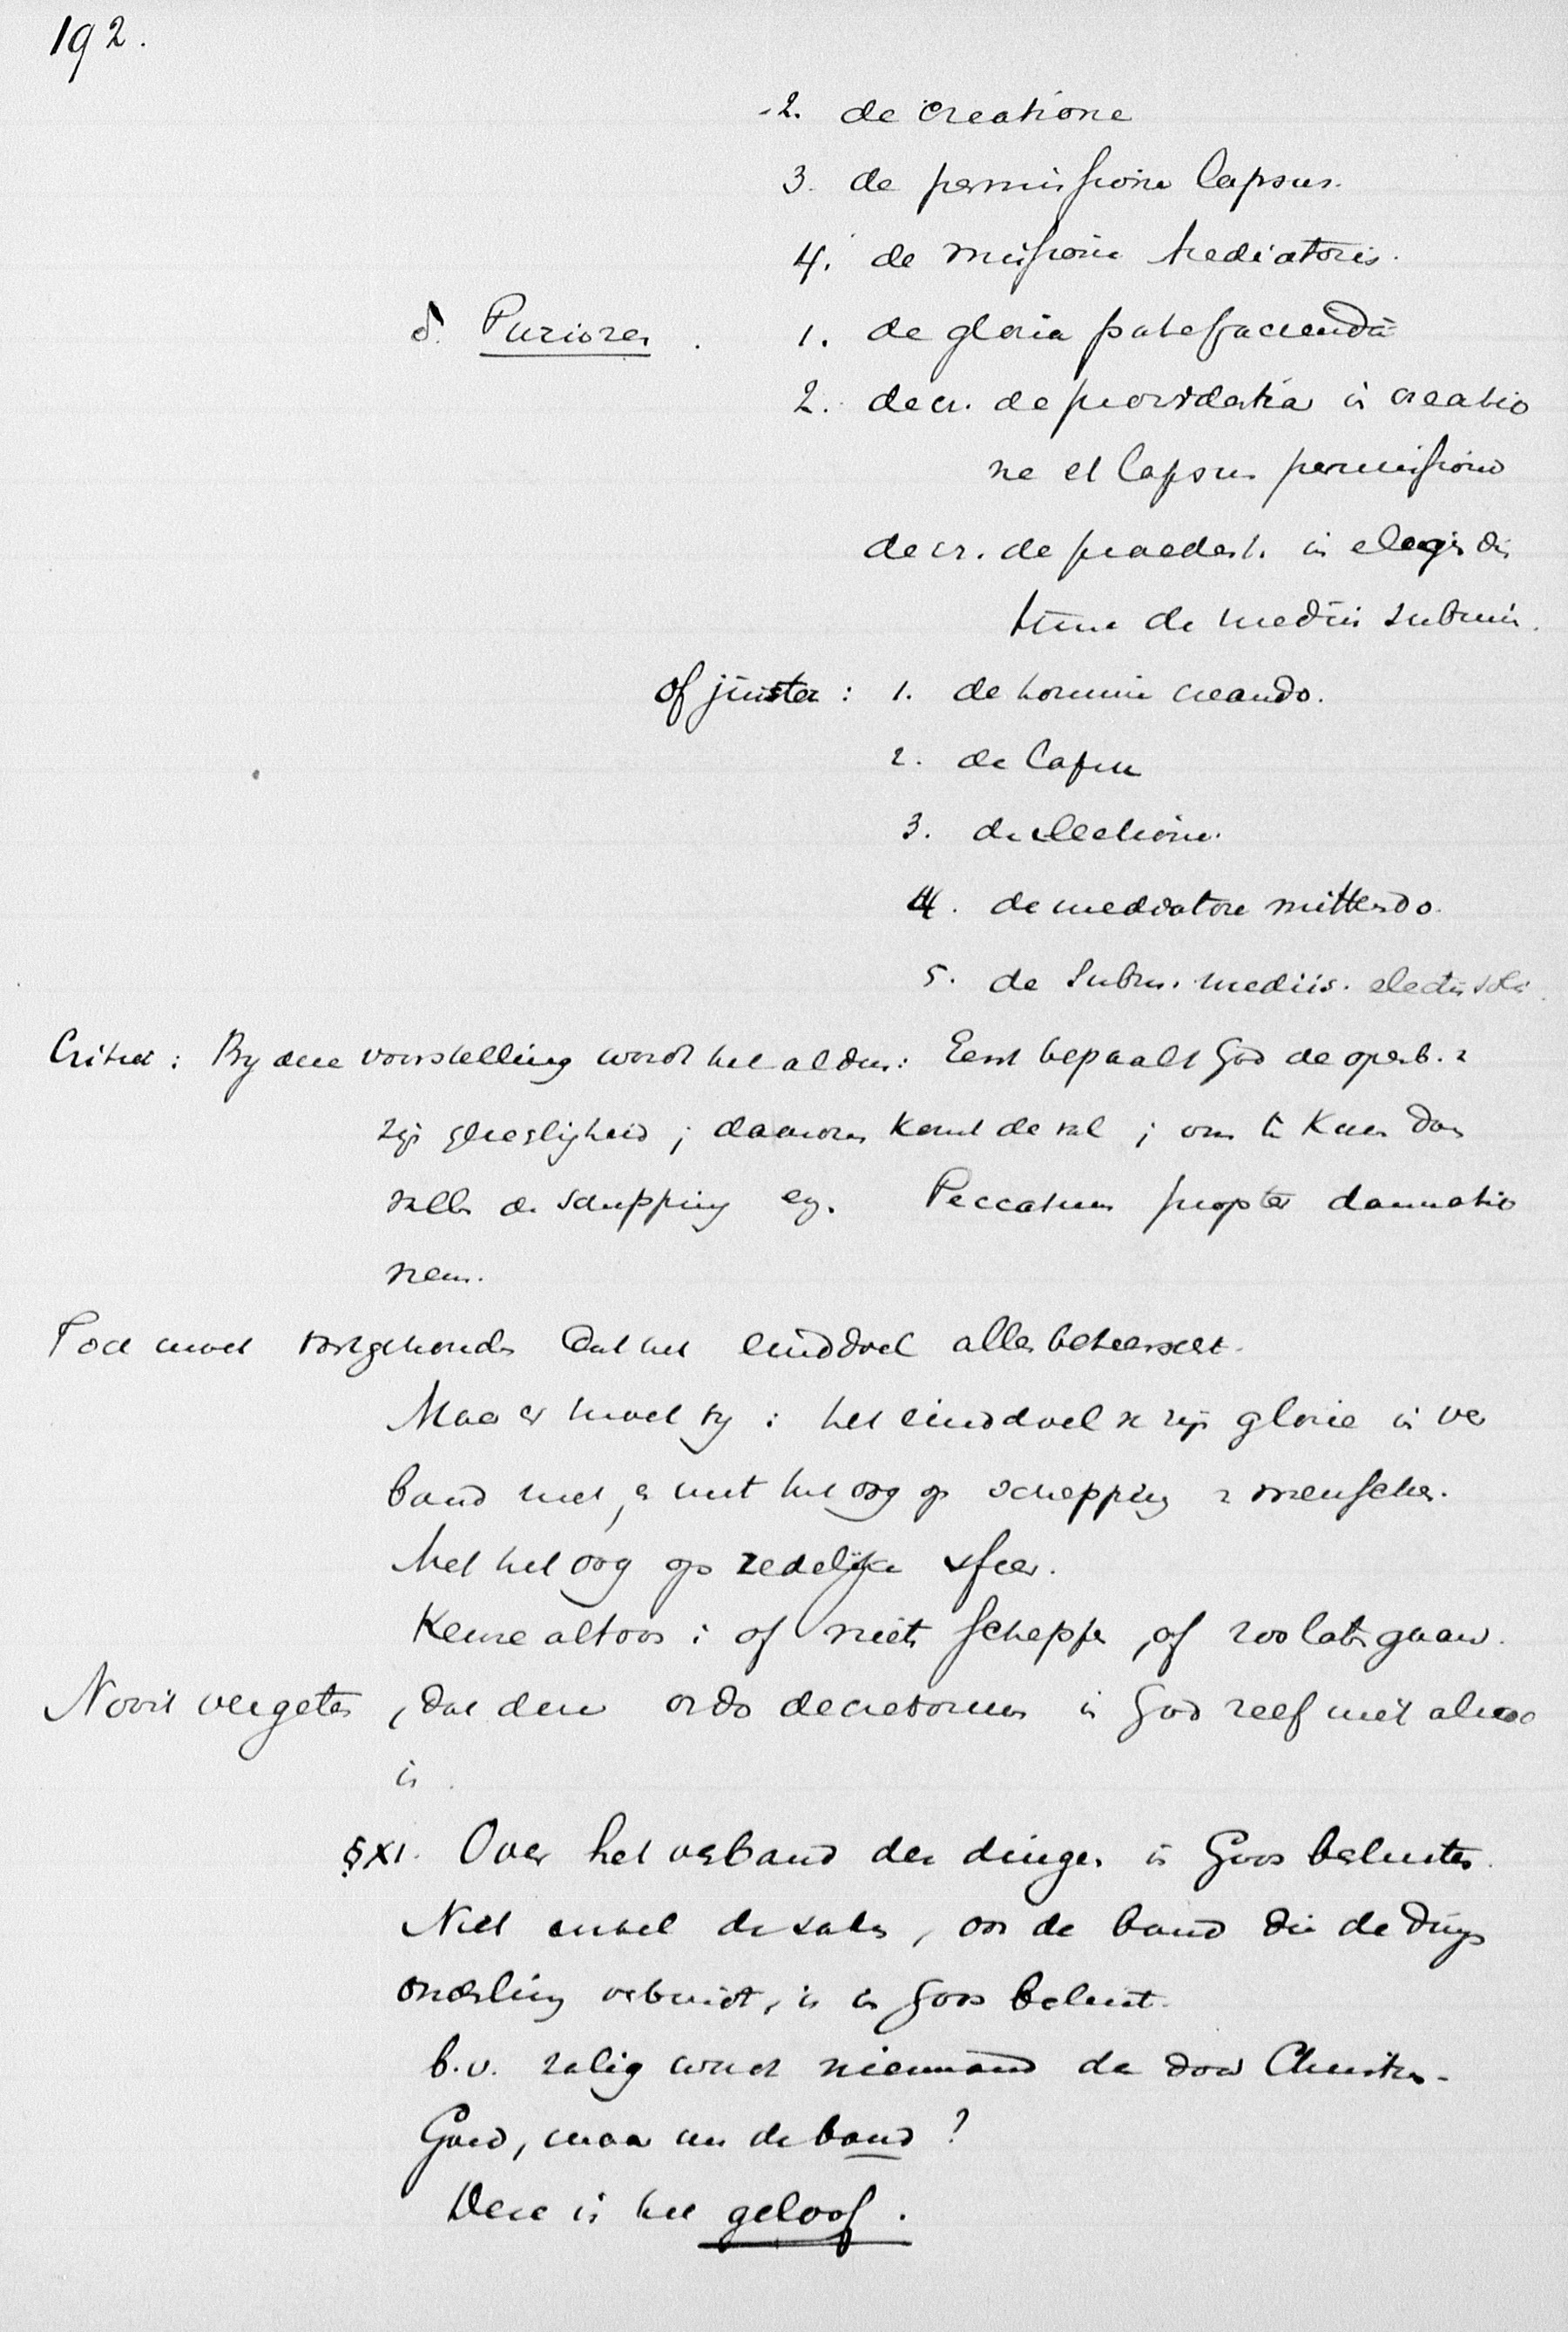 192.
2. de creatione
3. de permissione lapsus.
4. de missione Mediatoris.
δ. Puriores. 1. de gloria patefacienda
2. decr. de providentia in creatio
ne et lapsus permissione
decr. de praedest. in eligendis
tum de mediis submin.
of juister: 1. de homine creando.
2. de lapsu
3. de electione.
4. de mediatore mittendo.
5. de subm. mediis. electis
Critiek: By deze voorstelling wordt het aldus: Eerst bepaalt God de openb. v
zijn ; daarom komt de val; om te kunnen
vallen de schepping enz. Peccatum propter damnatio
nem.
Toch moet vastgehouden dat het einddoel alles beheerscht.
Maar er moet bij: het einddoel v zijn glorie in ver
band met, en met het oog op schepping v menschen.
Met het oog op zedelijke sfeer.
Keuze altoos: of niet scheppen, of zoo laten gaan.
Nooit vergeten, dat deze ordo decretorum in God zelf niet alzoo
is.
§ XI. Over het verband der dingen in Gods besluiten.
Niet enkel de zaken, ook de band die de dingen
onderling verbindt, is in Gods besluit.
b.v. zalig wordt niemand dan door Christus.
Goed, maar nu de band?
Deze is het geloof.